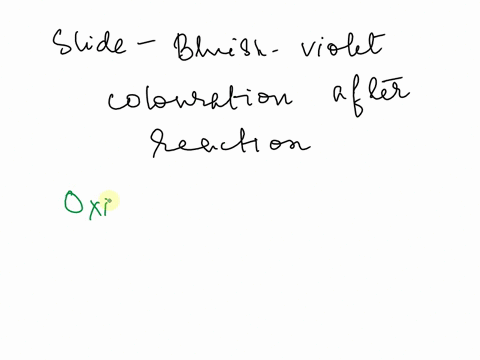 Slide - Bluish - violet
colouration after
reaction
Oxi